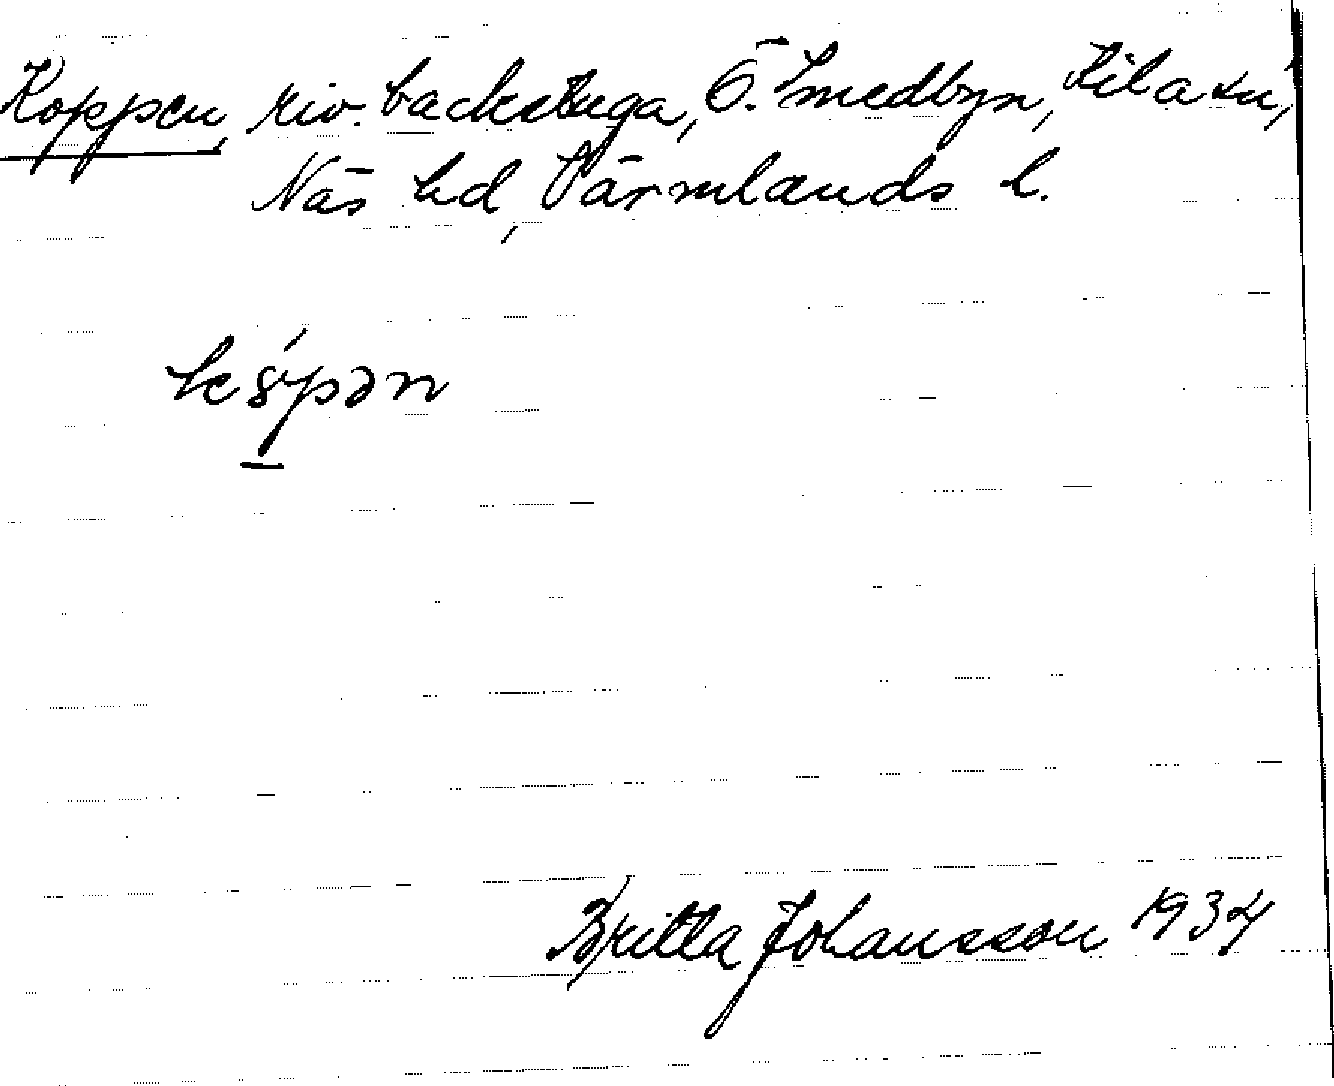 Koppen, riv. backstuga, Ö. Smedbyn, Kila sn,
Näs hd, Värmlands l.
Britta Johansson 1934